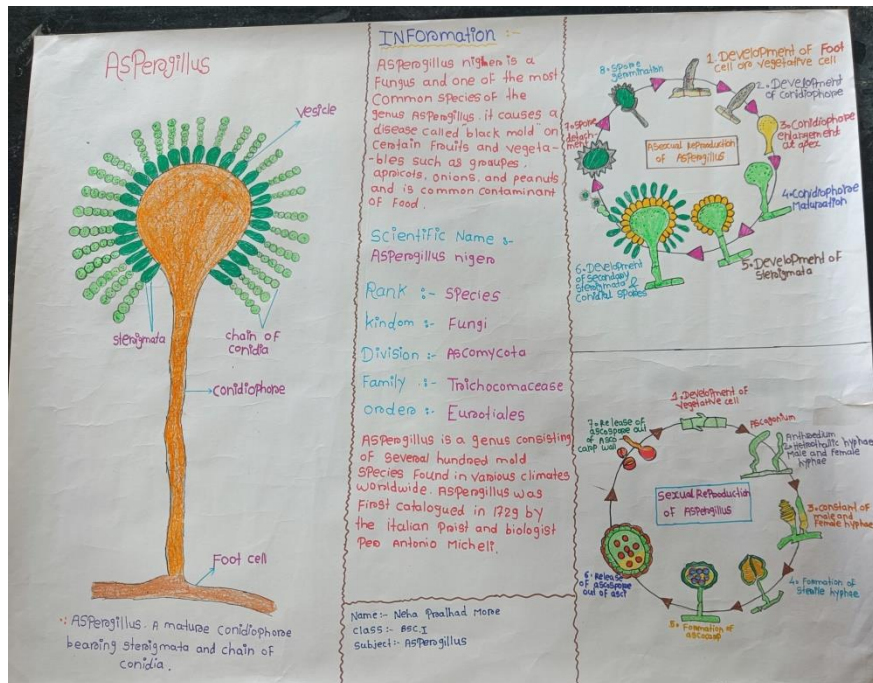 Aspergillus
vesicle
sterigmata
chain of
conidia
conidiophore
Foot cell
∴ Aspergillus. A mature conidiophore
bearing sterigmata and chain of
conidia.
INFormation :-
Aspergillus nigher is a
Fungus and one of the most
common species of the
genus Aspergillus. it causes a
disease called "black mold" on
certain fruits and vegeta-
-bles such as groupes,
apricots, onions, and peanuts
and is common contaminant
of Food.
Scientific Name :-
Aspergillus niger
Rank :- Species
kindom :- Fungi
Division :- Ascomycota
Family :- Trichocomacease
order :- Eurotiales
Aspergillus is a genus consisting
of several hundred mold
species found in various climates
worldwide. Aspergillus was
First catalogued in 1729 by
the italian Praist and biologist
Pero Antonio Micheli.
Name :- Neha Pralhad More
class :- BSC.I
subject :- Aspergillus
1. Development of Foot
cell or vegetative cell
2. Development
of conidiophore
3. Conidiophore
enlargement
at apex
4. Conidiophore
Maturation
5. Development of
sterigmata
6. Development
of secondary
sterigmata &
conidial spores
7. Spore
detach-
ment
8. Spore
germination
Asexual Reproduction
of Aspergillus
1. Development of
vegetative cell
Ascogonium
Antheredium
2. Heterothallic hyphae
Male and female
hyphae
3. constant of
male and
Female hyphae
4. Formation of
Sterile hyphae
5. Formation of
ascocarp
6. Release
of ascospore
out of asci
7. Release of
ascospore out
of Asco
carp wall
Sexual Reproduction
of Aspergillus